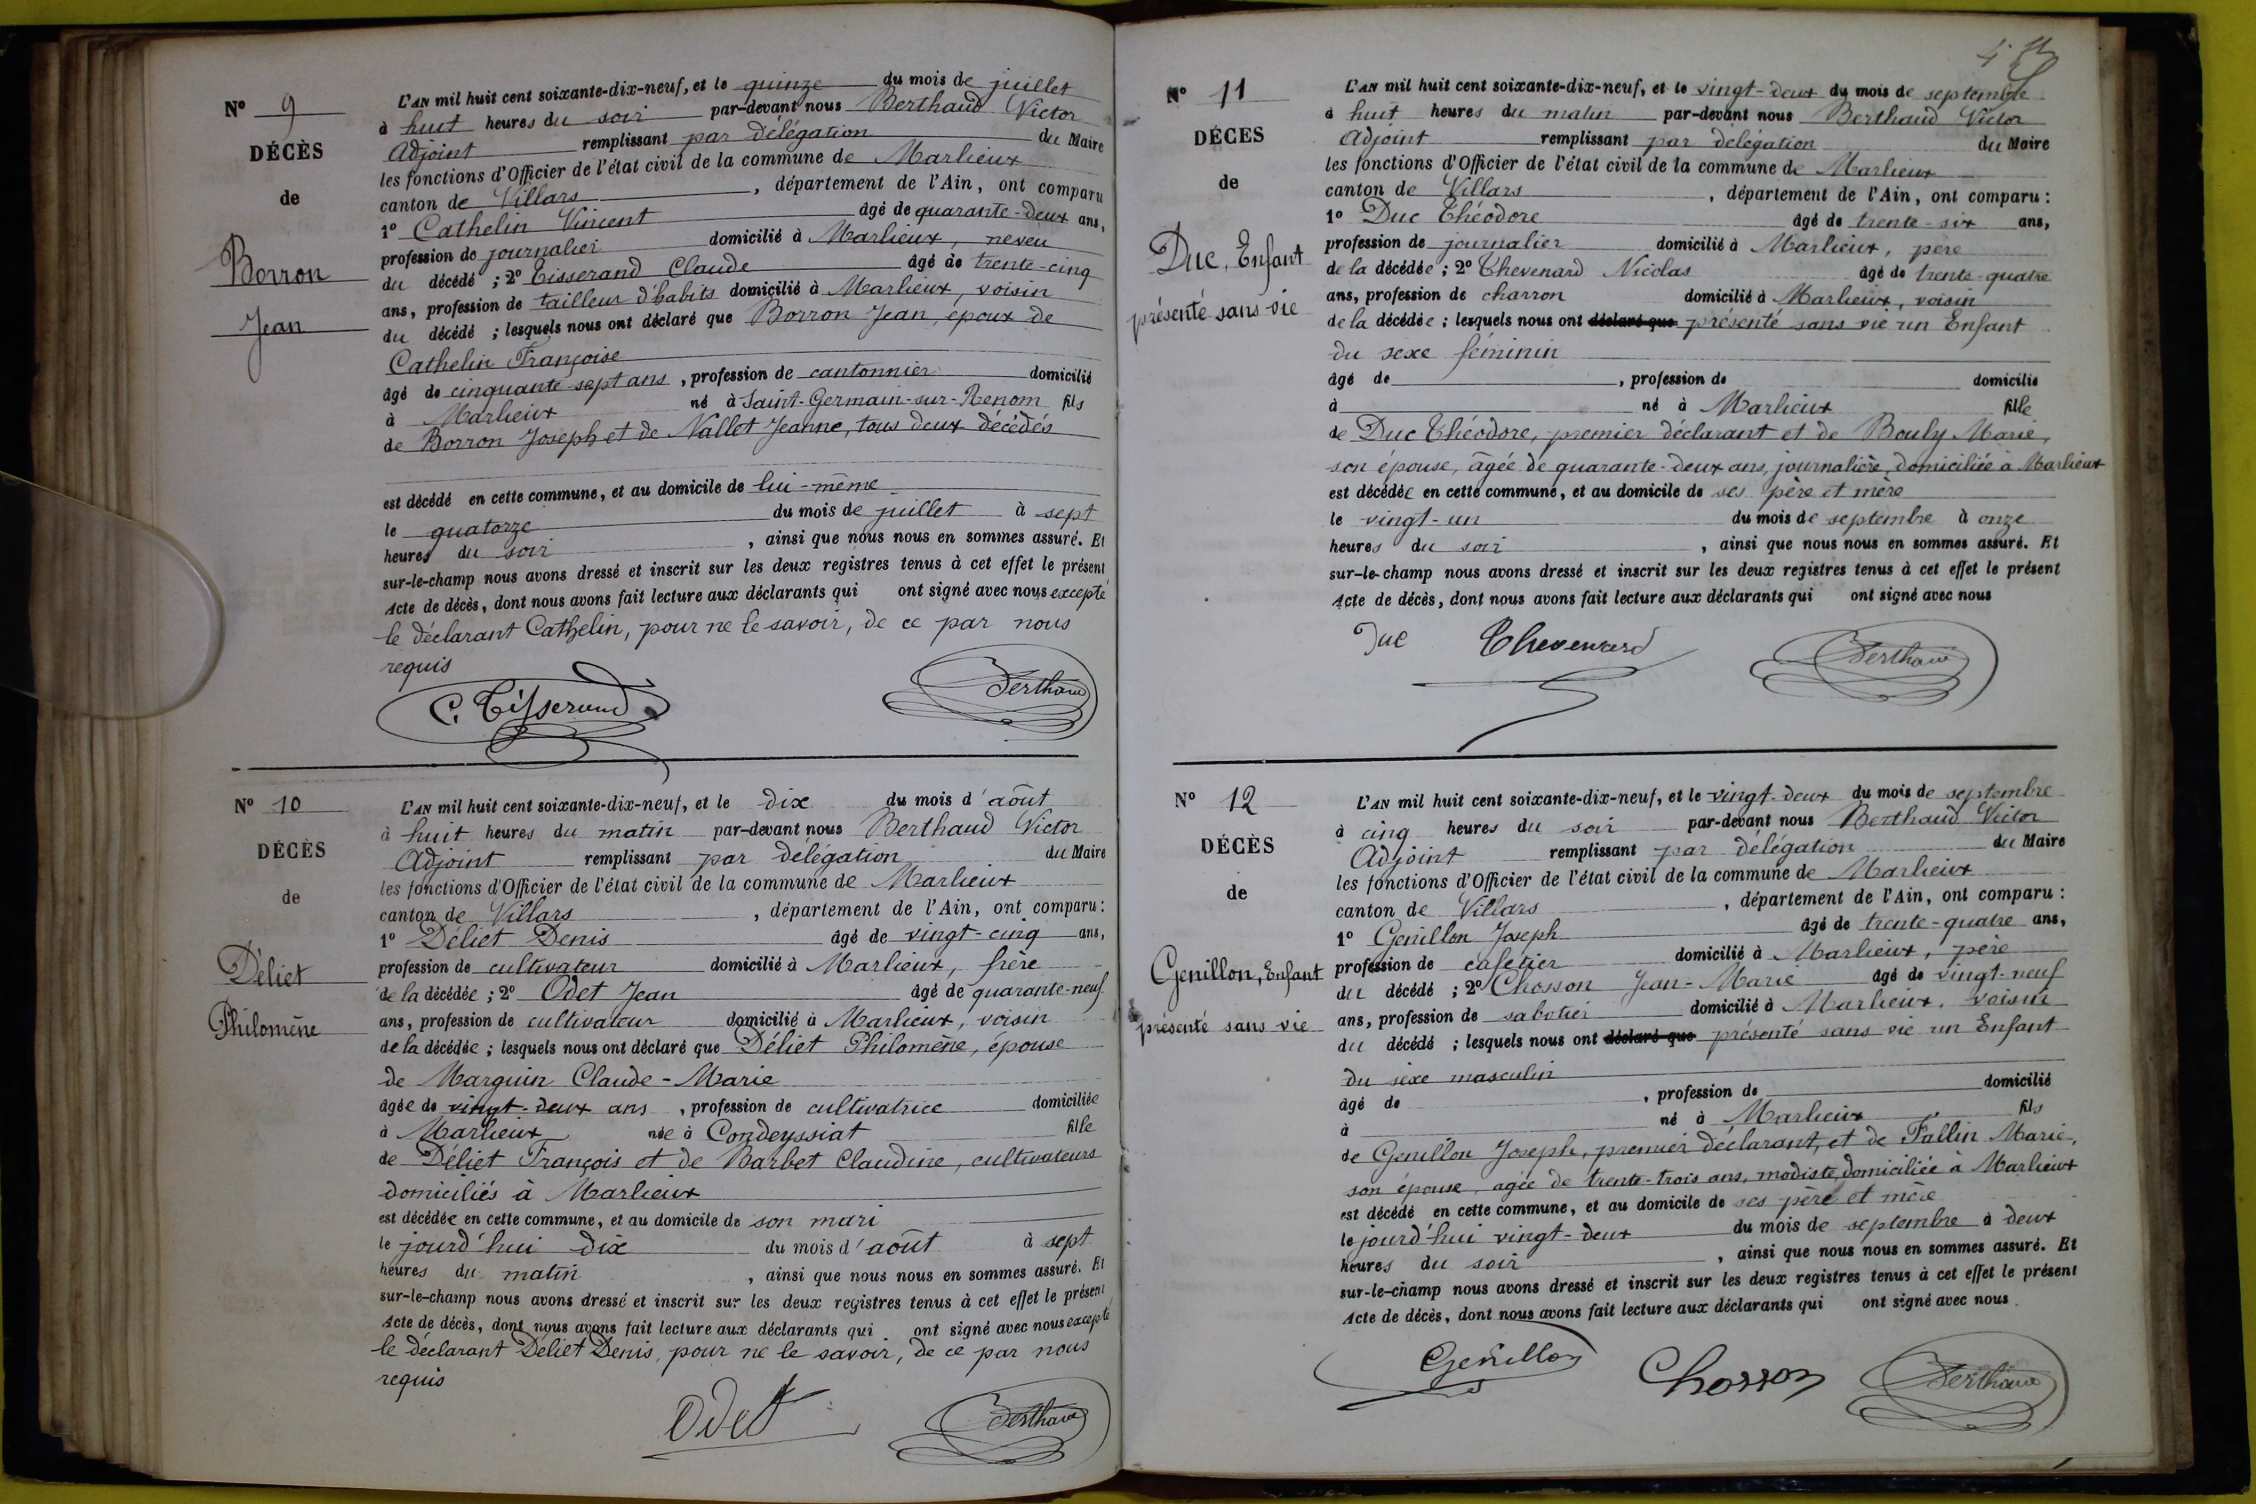 N° 9
DÉCÈS
de
Borron
Jean
L'AN mil huit cent soixante-dix-neuf, et le quinze du mois de juillet
à huit heures du soir par-devant nous Berthaud Victor
Adjoint remplissant par délégation du Maire
les fonctions d'Officier de l'état civil de la commune de Marlieux
canton de Villars, département de l'Ain, ont comparu
1° Cathelin Vincent âgé de quarante-deux ans,
profession de journalier domicilié à Marlieux, neveu
du décédé ; 2° Tisserand Claude âgé de trente-cinq
ans, profession de tailleur d'habits domicilié à Marlieux, voisin
du décédé ; lesquels nous ont déclaré que Borron Jean, époux de
Cathelin Françoise
âgé de cinquante-sept ans, profession de cantonnier domicilié
à Marlieux né à Saint-Germain-sur-Renom fils
de Borron Joseph et de Nallet Jeanne, tous deux décédés
est décédé en cette commune, et au domicile de lui-même
le quatorze du mois de juillet à sept
heures du soir, ainsi que nous nous en sommes assuré. Et
sur-le-champ nous avons dressé et inscrit sur les deux registres tenus à cet effet le présent
Acte de décès, dont nous avons fait lecture aux déclarants qui ont signé avec nous excepté
le déclarant Cathelin, pour ne le savoir, de ce par nous
requis
C. Tisserand Berthaud
N° 10
DÉCÈS
de
Déliet
Philomène
L'AN mil huit cent soixante-dix-neuf, et le dix du mois d'août
à huit heures du matin par-devant nous Berthaud Victor
Adjoint remplissant par délégation du Maire
les fonctions d'Officier de l'état civil de la commune de Marlieux
canton de Villars, département de l'Ain, ont comparu :
1° Déliet Denis âgé de vingt-cinq ans,
profession de cultivateur domicilié à Marlieux, frère
de la décédée ; 2° Odet Jean âgé de quarante-neuf
ans, profession de cultivateur domicilié à Marlieux, voisin
de la décédée ; lesquels nous ont déclaré que Déliet Philomène, épouse
de Marguin Claude-Marie
âgée de vingt-deux ans, profession de cultivatrice domiciliée
à Marlieux née à Condeyssiat fille
de Déliet François et de Barbet Claudine, cultivateurs
domiciliés à Marlieux
est décédée en cette commune, et au domicile de son mari
le jourd'hui dix du mois d'août à sept
heures du matin, ainsi que nous nous en sommes assuré. Et
sur-le-champ nous avons dressé et inscrit sur les deux registres tenus à cet effet le présent
Acte de décès, dont nous avons fait lecture aux déclarants qui ont signé avec nous excepté
le déclarant Déliet Denis, pour ne le savoir, de ce par nous
requis
Odet Berthaud
N° 11
DÉCES
de
Duc, Enfant
présenté sans vie
L'AN mil huit cent soixante-dix-neuf, et le vingt-deux du mois de septembre
à huit heures du matin par-devant nous Berthaud Victor
Adjoint remplissant par délégation du Maire
les fonctions d'Officier de l'état civil de la commune de Marlieux
canton de Villars, département de l'Ain, ont comparu :
1° Duc Théodore âgé de trente-six ans,
profession de journalier domicilié à Marlieux, père
de la décédée ; 2° Thevenard Nicolas âgé de trente-quatre
ans, profession de charron domicilié à Marlieux, voisin
de la décédée ; lesquels nous ont déclaré que présenté sans vie un Enfant
du sexe féminin
âgé de, profession de domicilié
à né à Marlieux fille
de Duc Théodore, premier déclarant et de Bouly Marie,
son épouse, âgée de quarante-deux ans, journalière, domiciliée à Marlieux
est décédée en cette commune, et au domicile de ses père et mère
le vingt-un du mois de septembre à onze
heures du soir, ainsi que nous nous en sommes assuré. Et
sur-le-champ nous avons dressé et inscrit sur les deux registres tenus à cet effet le présent
Acte de décès, dont nous avons fait lecture aux déclarants qui ont signé avec nous
Duc Thevenard Berthaud
N° 12
DÉCÈS
de
Genillon, Enfant
présenté sans vie
L'AN mil huit cent soixante-dix-neuf, et le vingt-deux du mois de septembre
à cinq heures du soir par-devant nous Berthaud Victor
Adjoint remplissant par délégation du Maire
les fonctions d'Officier de l'état civil de la commune de Marlieux
canton de Villars, département de l'Ain, ont comparu :
1° Genillon Joseph âgé de trente-quatre ans,
profession de cafetier domicilié à Marlieux, père
du décédé ; 2° Chosson Jean-Marie âgé de vingt-neuf
ans, profession de sabotier domicilié à Marlieux, voisin
du décédé ; lesquels nous ont déclaré que présenté sans vie un Enfant
du sexe masculin
âgé de, profession de domicilié
à né à Marlieux fils
de Genillon Joseph, premier déclarant, et de Fallin Marie,
son épouse, agée de trente-trois ans, modiste, domiciliée à Marlieux
est décédé en cette commune, et au domicile de ses père et mère
le jourd'hui vingt-deux du mois de septembre à deux
heures du soir, ainsi que nous nous en sommes assuré. Et
sur-le-champ nous avons dressé et inscrit sur les deux registres tenus à cet effet le présent
Acte de décès, dont nous avons fait lecture aux déclarants qui ont signé avec nous.
Genillon Chosson Berthaud